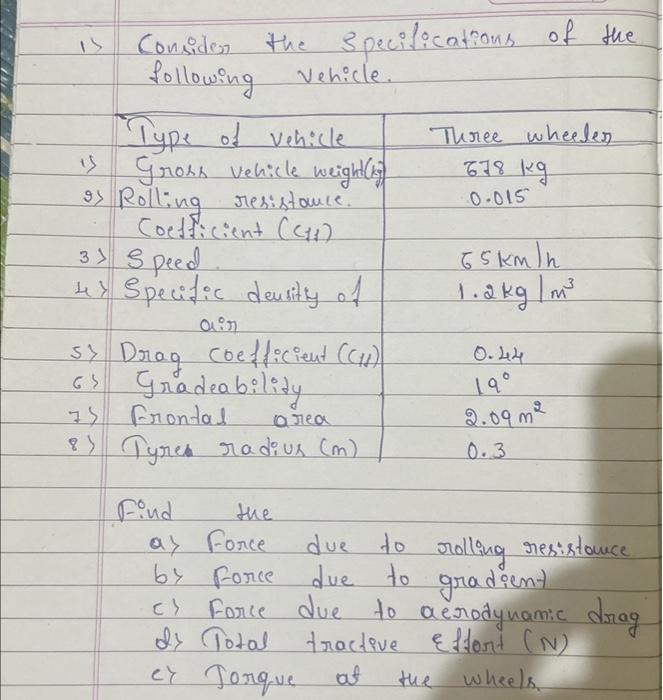 1) Consider the specifications of the
following vehicle.
Type of vehicle Three wheeler
1) Gross vehicle weight(kg) 678 kg
2) Rolling resistance. 0.015
Coefficient (Crr)
3) Speed. 65km/h
4) Specific density of 1.2kg/m³
air
5) Drag coefficient (Crr) 0.44
6) Gradeability 19°
7) Frontal area 2.09m²
8) Tyres radius (m) 0.3
Find the
a) Force due to rolling resistance
b) Force due to gradient
c) Force due to aerodynamic drag
d) Total tractive Effort (N)
e) Torque at the wheels